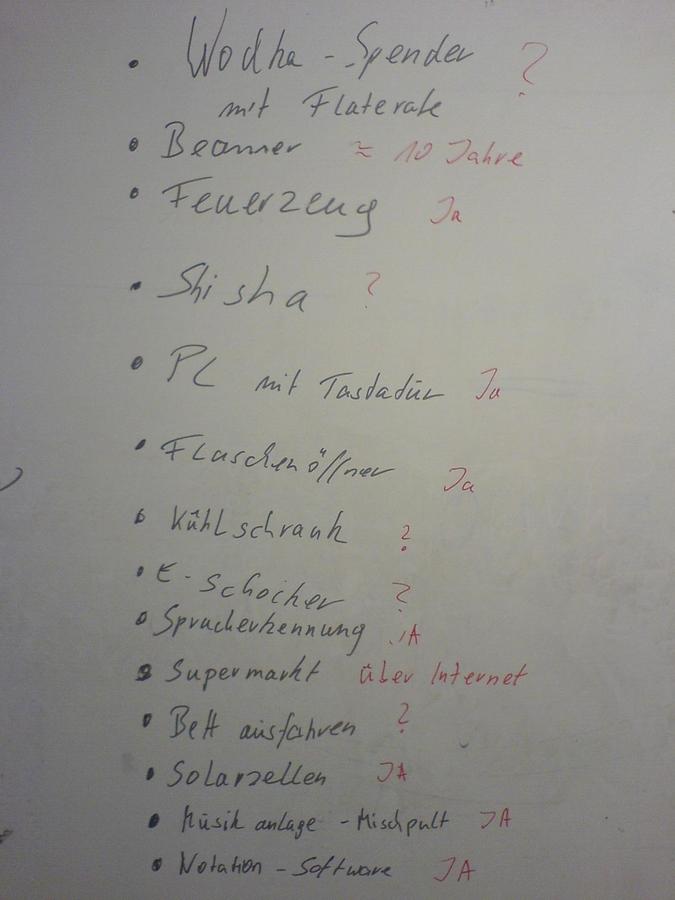 • Wodka - Spender ?
mit Flaterate
• Beamer ≈ 10 Jahre
• Feuerzeug Ja
• Shisha ?
• PC mit Tastadür Ja
• Flaschenöffner Ja
• Kühlschrank ?
• E-Schocker ?
• Spracherkennung JA
• Supermarkt über Internet
• Bett ausfahren ?
• Solarzellen JA
• Müsik anlage - Mischpult JA
• Notation - Software JA